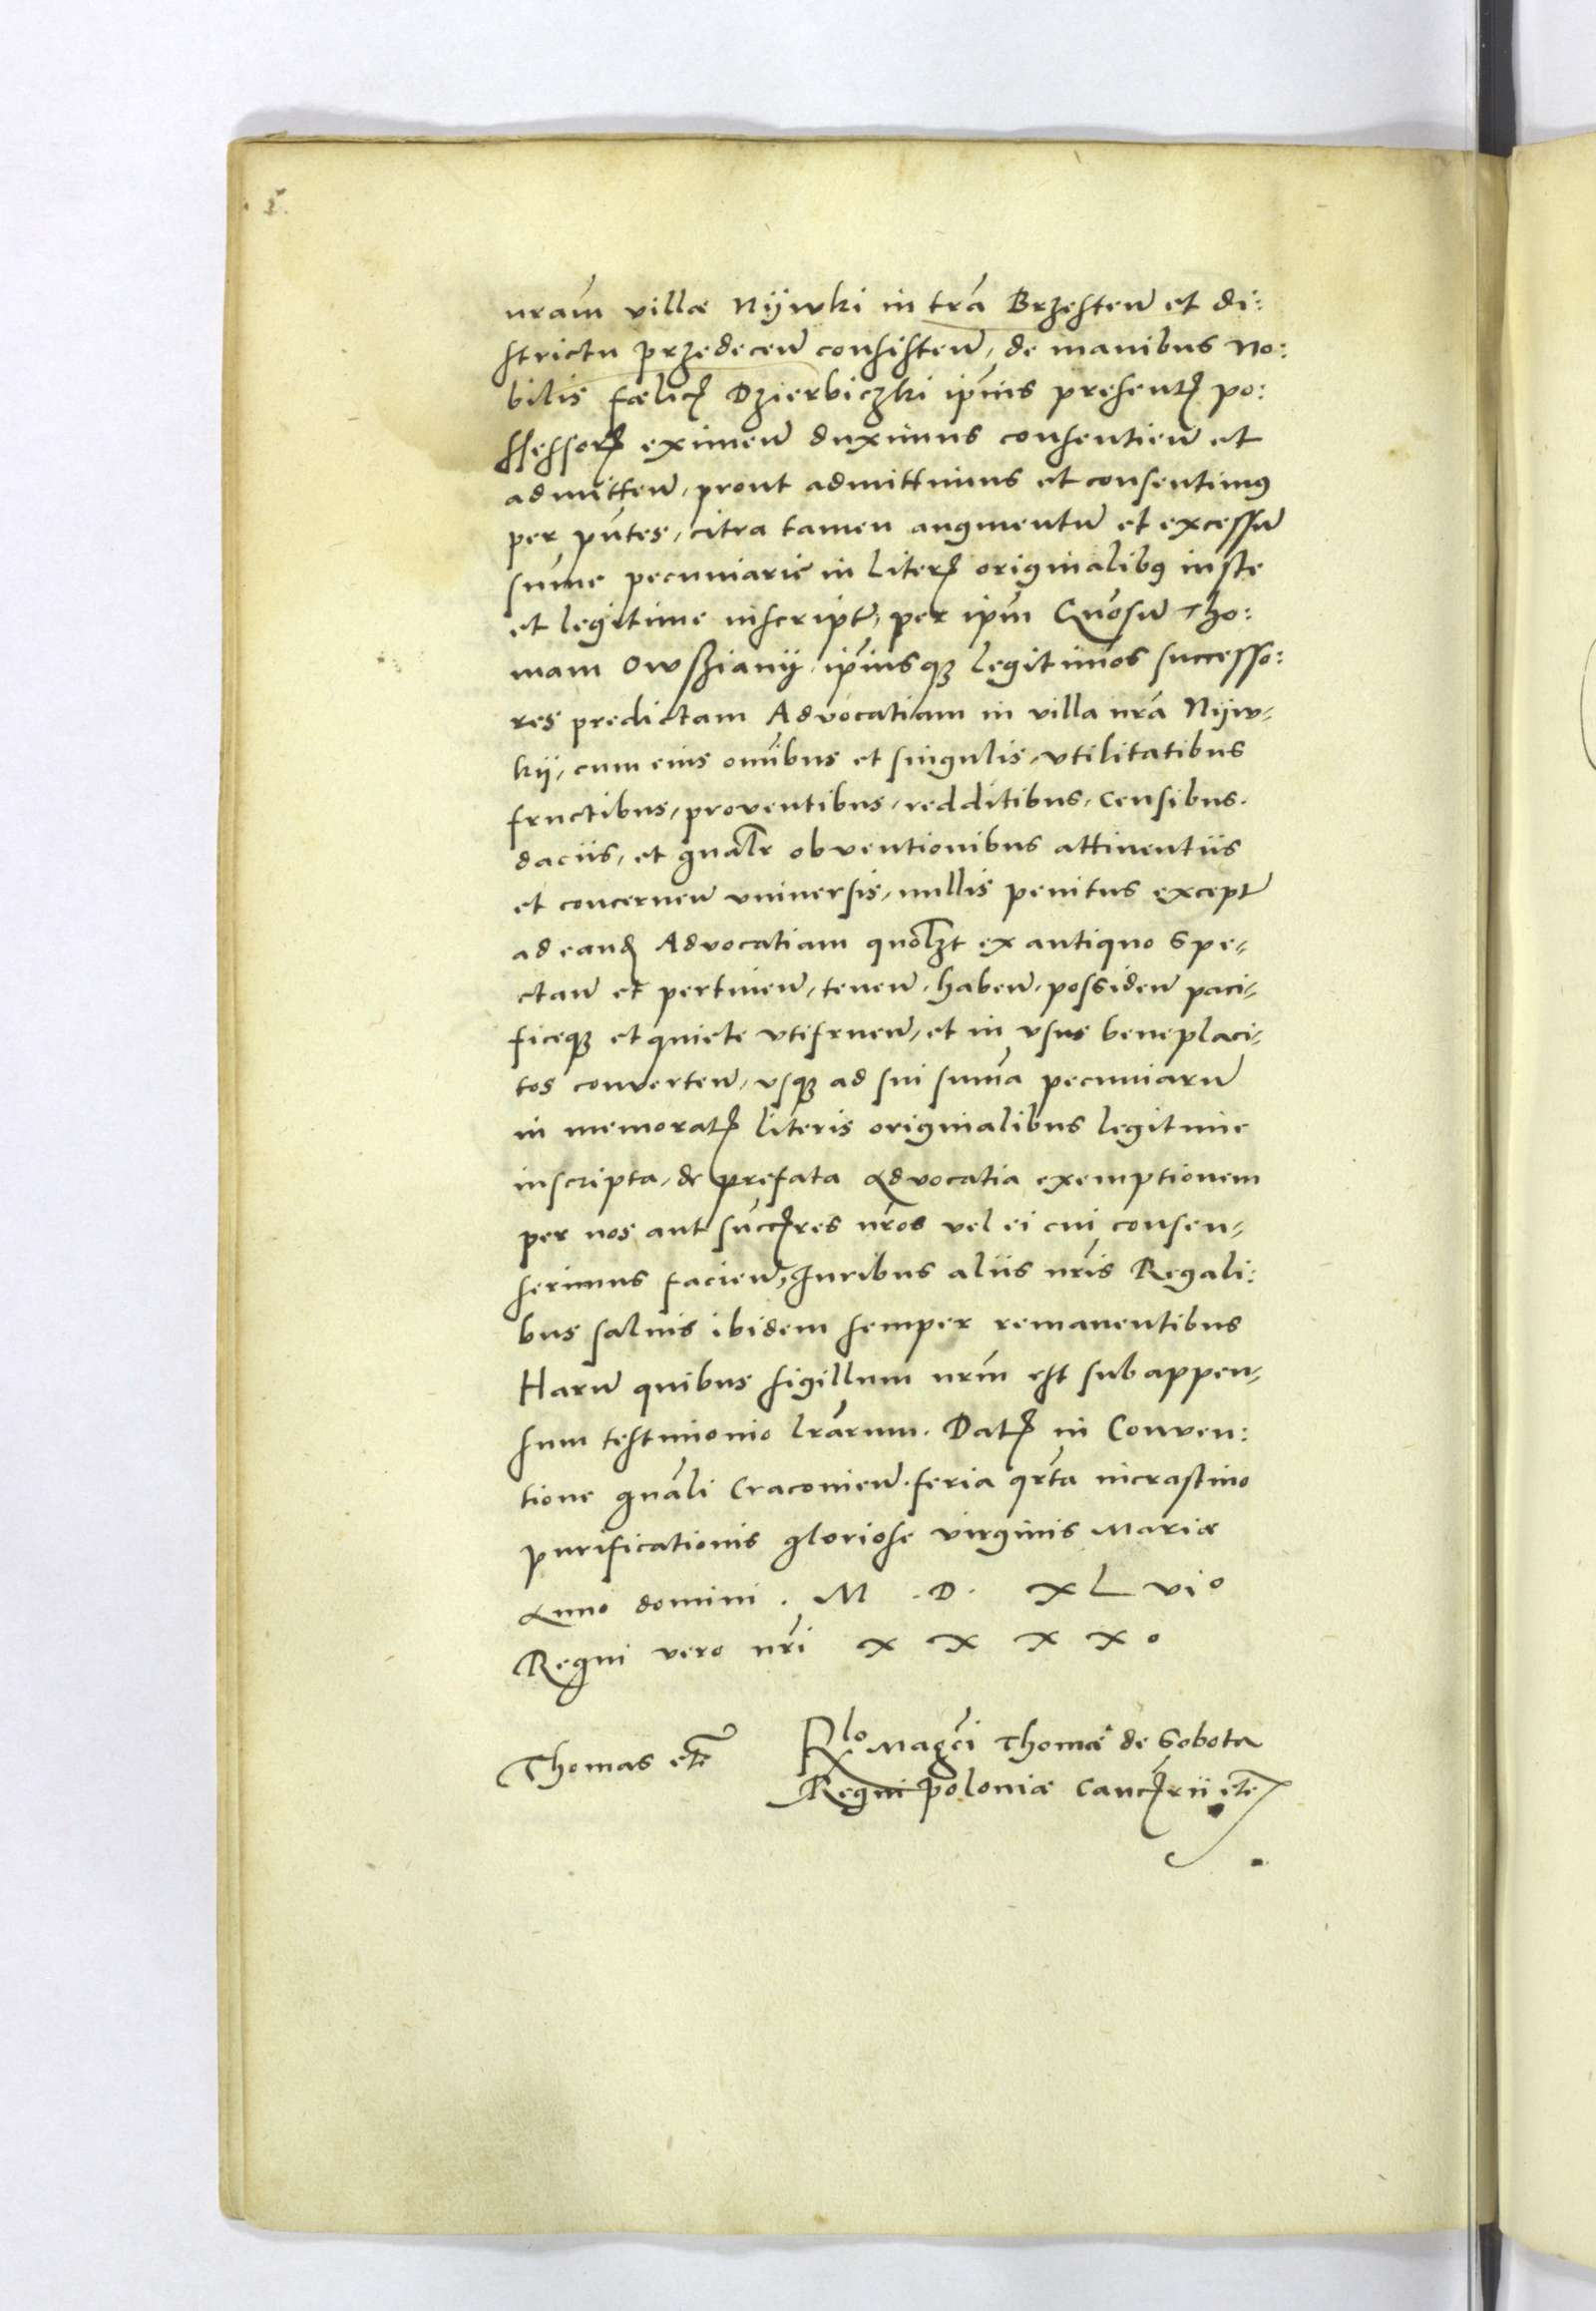 nram̃ villæ Nÿwki in tr̃a Brzesten̄ et di:
strictu przedecen̄ consisten̄, de manibus No:
bilis fœlicꝭ Dzierbiczki ip̃ius presentꝭ po:
ssessorꝭ eximen̄ duximus consentien̄ et
admitten̄, prout admittimus et consentimꝰ
per pñtes, citra tamen augmentū et excessū
sum̄e pecuniarie in literꝭ originalibꝰ iuste
et legitime inscriptꝭ, per ip̃m Gñosum Tho:
mam Owsziany, ip̃iusqꝫ legitimos successo:
res predictam Advocatiam in villa nr̃a Nÿw-
kÿ, cum eius om̃ibus et singulis, vtilitatibus
fructibus, proventibus, redditibus, censibus.
daciis, et gñalr̃ obventionibus attinentiis
et concernen̄ vniversis, nullis penitus exceptꝭ
ad eandꝭ Advocatiam quolꝫt ex antiquo spe-
ctan̄ et pertinen̄, tenen̄, haben̄, possiden̄ paci-
ficeqꝫ et quiete vtifruen̄, et in vsus beneplaci-
tos converten̄, vsqꝫ ad sui sum̄a pecuniarū
in memoratꝭ literis originalibus legitime
inscripta, de prefata Advocatia exemptionem
per nos aut succꝭres nr̃os vel ei cui consen-
serimus facien̄, Iuribus aliis nr̃is Regali:
bus salvis ibidem semper remanentibus
Harū quibus sigillum nr̃m est subappen-
sum testimonio lr̃arum. Datꝭ in Conven:
tione gñali Cracovien̄. feria qr̃ta incrastino
purificationis gloriose virginis Mariæ
Anno domini . M . D . XL vi°
Regni vero nr̃i X X X X °
Thomas etc̃
R̃lo Magc̃i Thomæ de Sobota
Regni poloniæ Cancꝭrii etc̃